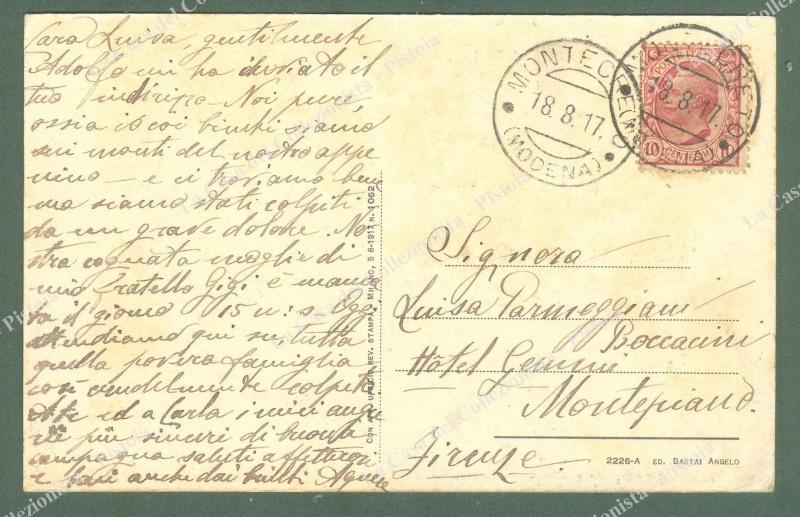 Cara Luisa, gentilmente
Adolfo mi ha inviato il
tuo indirizzo - Noi pure,
ossia io coi bimbi siamo
sui monti del nostro appe
nino - e ci troviamo bene
ma siamo stati colpiti
da un grave dolore. No
stra cognata moglie di
mio fratello Gigi è manca
ta il giorno 15 u: s. Oggi
attendiamo qui su tutta
quella povera famiglia
così crudelmente colpita
A te ed a Carla i miei augu
ri più sinceri di buona
campagna saluti affettuosi
e baci anche dai bimbi Agnese
CON APP. UFFICIO REV. STAMPA, MILANO, 5 6-1917 N. 1062
MONTECRETO
18.8.17.
(MODENA)
MONTECRETO
18.8.17.
(MODENA)
POSTE ITALIANE
10 CENTESIMI 10
Signora
Luisa Parmeggiani
Boccacini
Hôtel Gemmi
Montepiano.
Firenze
2226-A ED. BASTAI ANGELO
La Casa del Collezionista - Pistoia